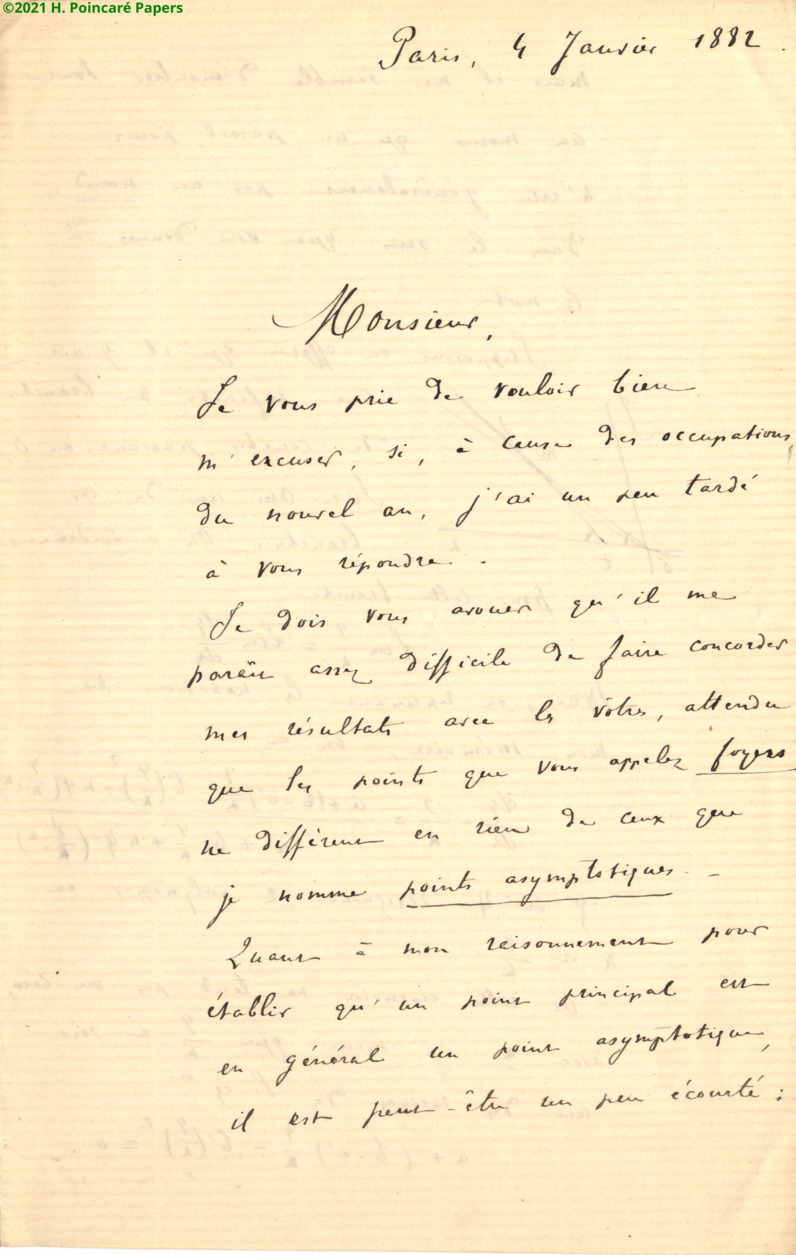 ©2021 H. Poincaré Papers
Paris, 4 Janvier 1882.
Monsieur,
Je vous prie de vouloir bien
m'excuser, si, à cause des occupations
du nouvel an, j'ai un peu tardé
à vous répondre.
Je dois vous avouer qu'il me
paraît assez difficile de faire concorder
mes résultats avec les vôtres, attendu
que les points que vous appelez foyers
ne diffèrent en rien de ceux que
je nomme points asymptotiques. –
Quant à mon raisonnement pour
établir qu'un point principal est
en général un point asymptotique,
il est peut-être un peu écourté ;